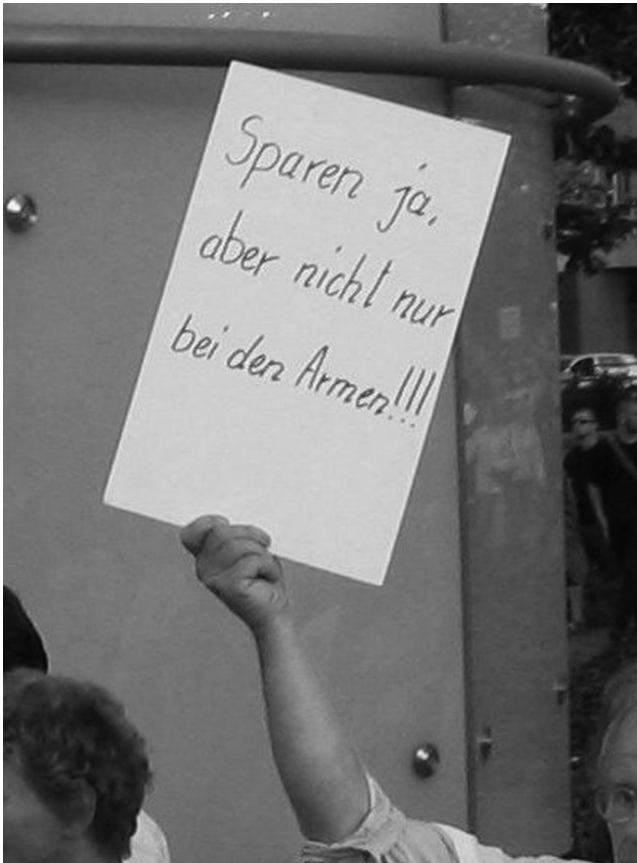 Sparen ja,
aber nicht nur
bei den Armen!!!